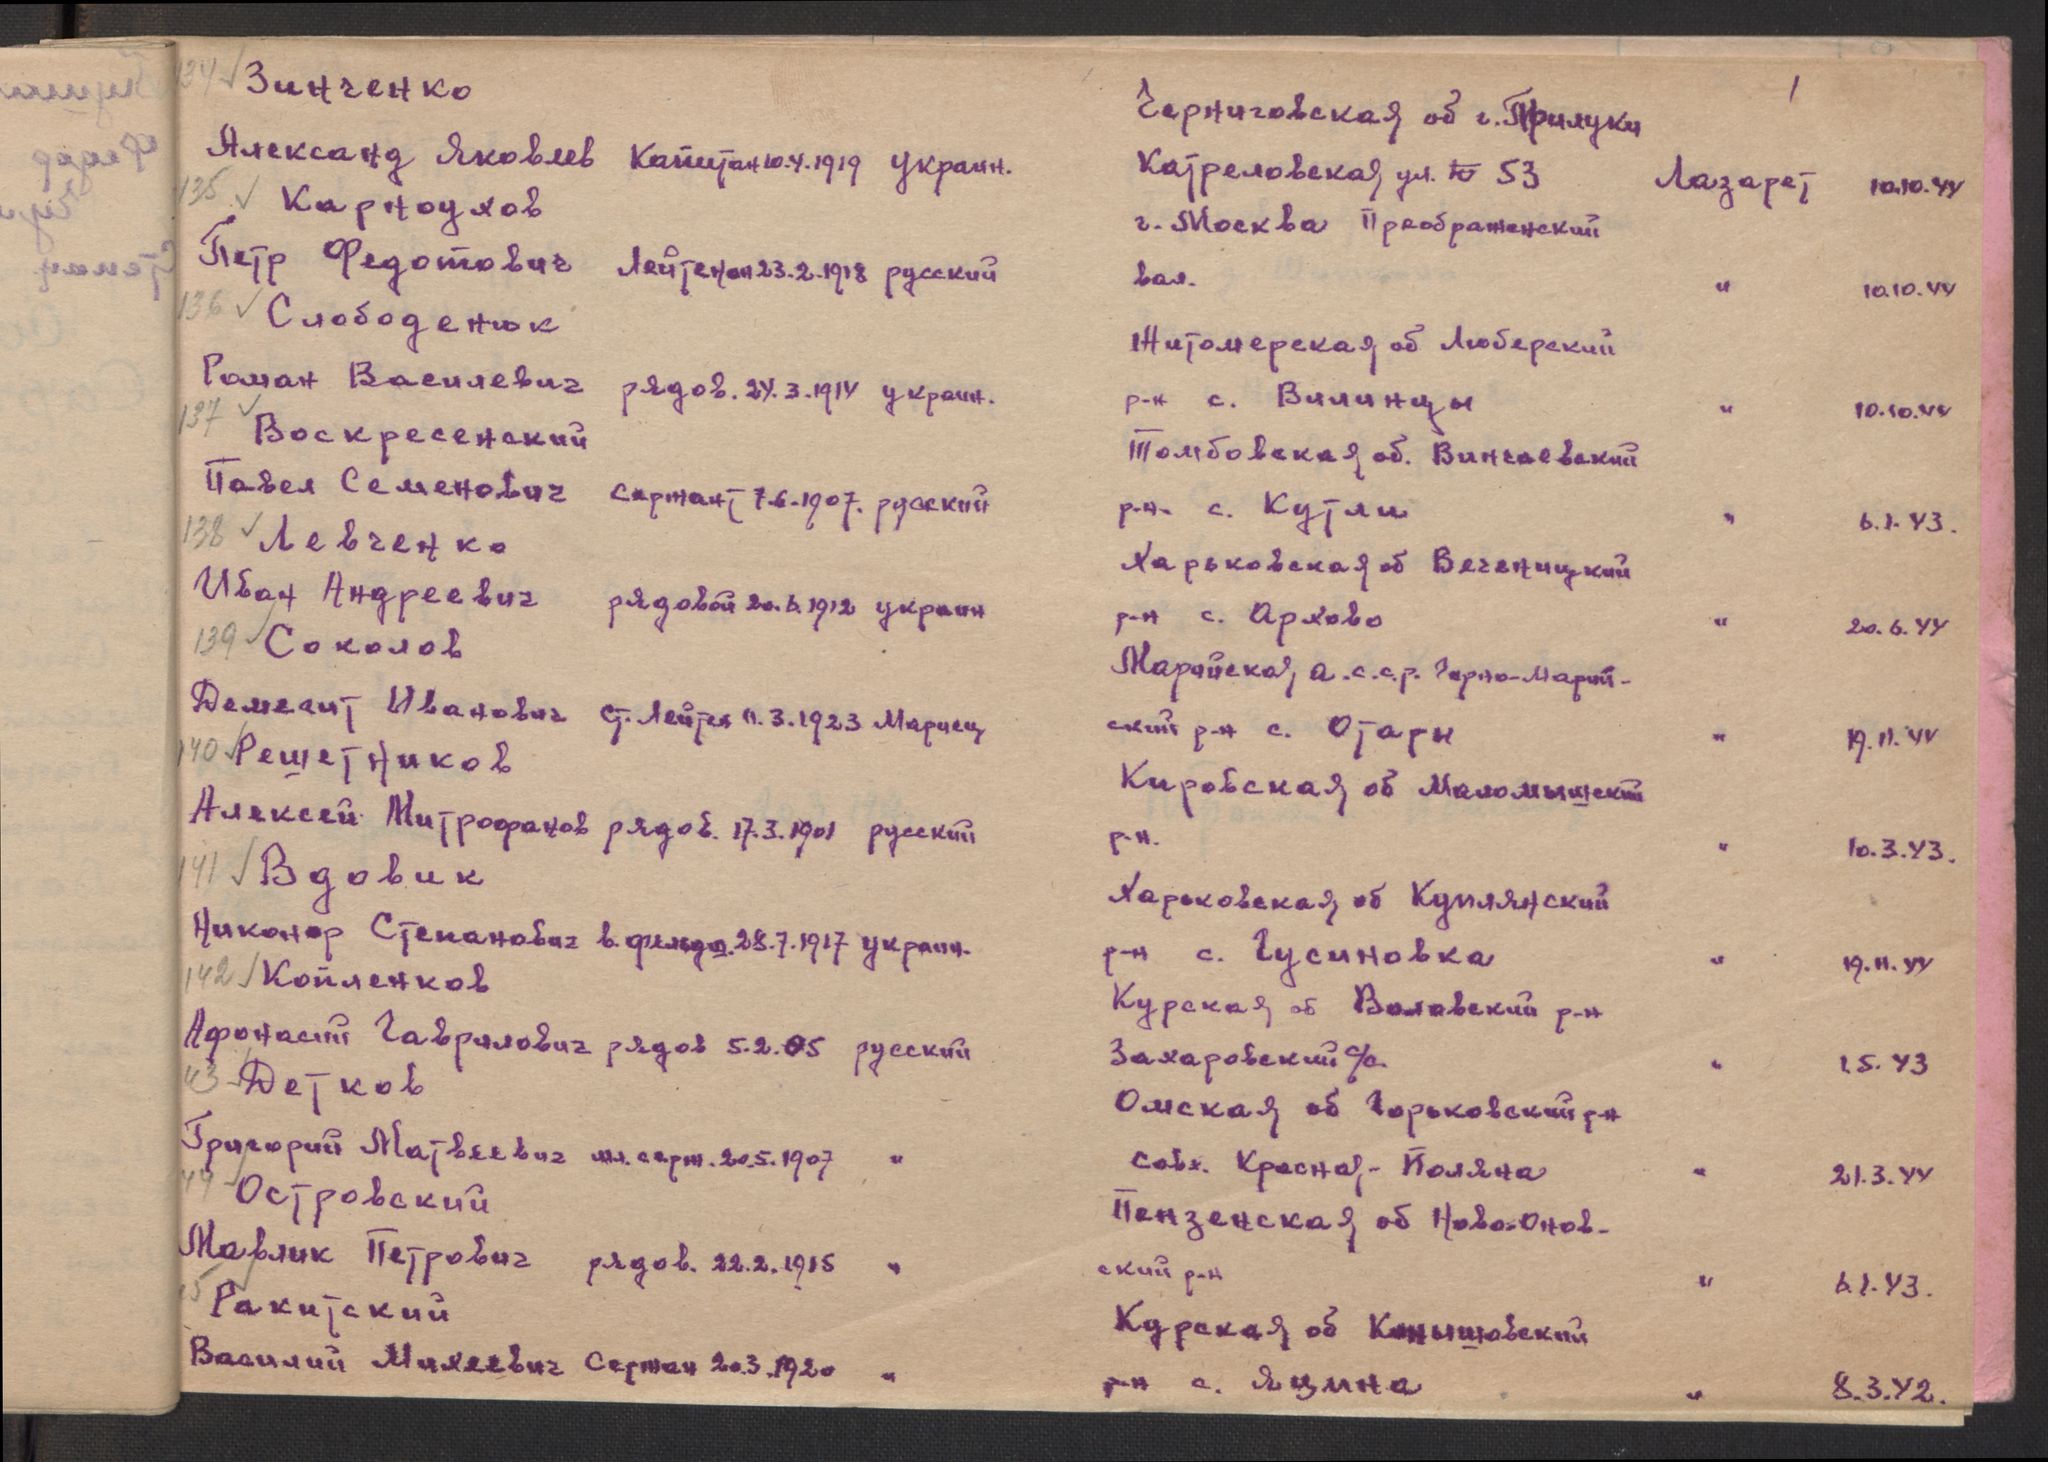 134 Зинченко
Черниговская об г. Прилуки
Александ Яковлев Капитан 10.4.1919 украин. Катреловская ул. № 53 Лазарет 10.10.44
135 Карноухов
г. Москва Преображенский
Петр Федотович Лейтенан 23.2.1918 русский вал. " 10.10.44
136 Слободенюк
Житомерская об Люберский
Роман Василевич рядов. 24.3.1914 украин. р-н с. Вилинцы " 10.10.44
137 Воскресенский
Томбовская об. Винчаевский
Павел Семенович сержант 7.6.1907. русский р-н. с. Кутли " 6.1.43.
138 Левченко
Харьковская об Веченицкий
Иван Андреевич рядовой 20.6.1912 украин р-н с. Архово " 20.6.44
139 Соколов
Марийская а.с.с.р. Горно-Марий-
Демент Иванович ст. Лейтен 11.3.1923 Мариец ский р-н с. Отары " 19.11.44
140 Решетников
Кировская об Маломышский
Алексей Митрофанов рядов. 17.3.1901 русский р-н. " 10.3.43.
141 Вдовик
Харьковская об Куплянский
Никонор Степанович в. фельдш. 28.7.1917 украин. р-н с. Гусиновка " 19.11.44
142 Копленков
Курская об Воловский р-н
Афонасий Гаврилович рядов 5.2.05 русский Захаровский с/с. " 1.5.43
43 Детков
Омская об Горьковский р-н
Григорий Матвеевич мл. серж. 20.5.1907 " совх. Красная-Поляна " 21.3.44
44 Островский
Пензенская об Ново-Онов-
Мавлик Петрович рядов. 22.2.1915 " ский р-н " 6.1.43.
5 Ракитский
Курская об Конышовский
Василий Михеевич Сержан 20.3.1920 " р-н с. Яцина " 8.3.42.